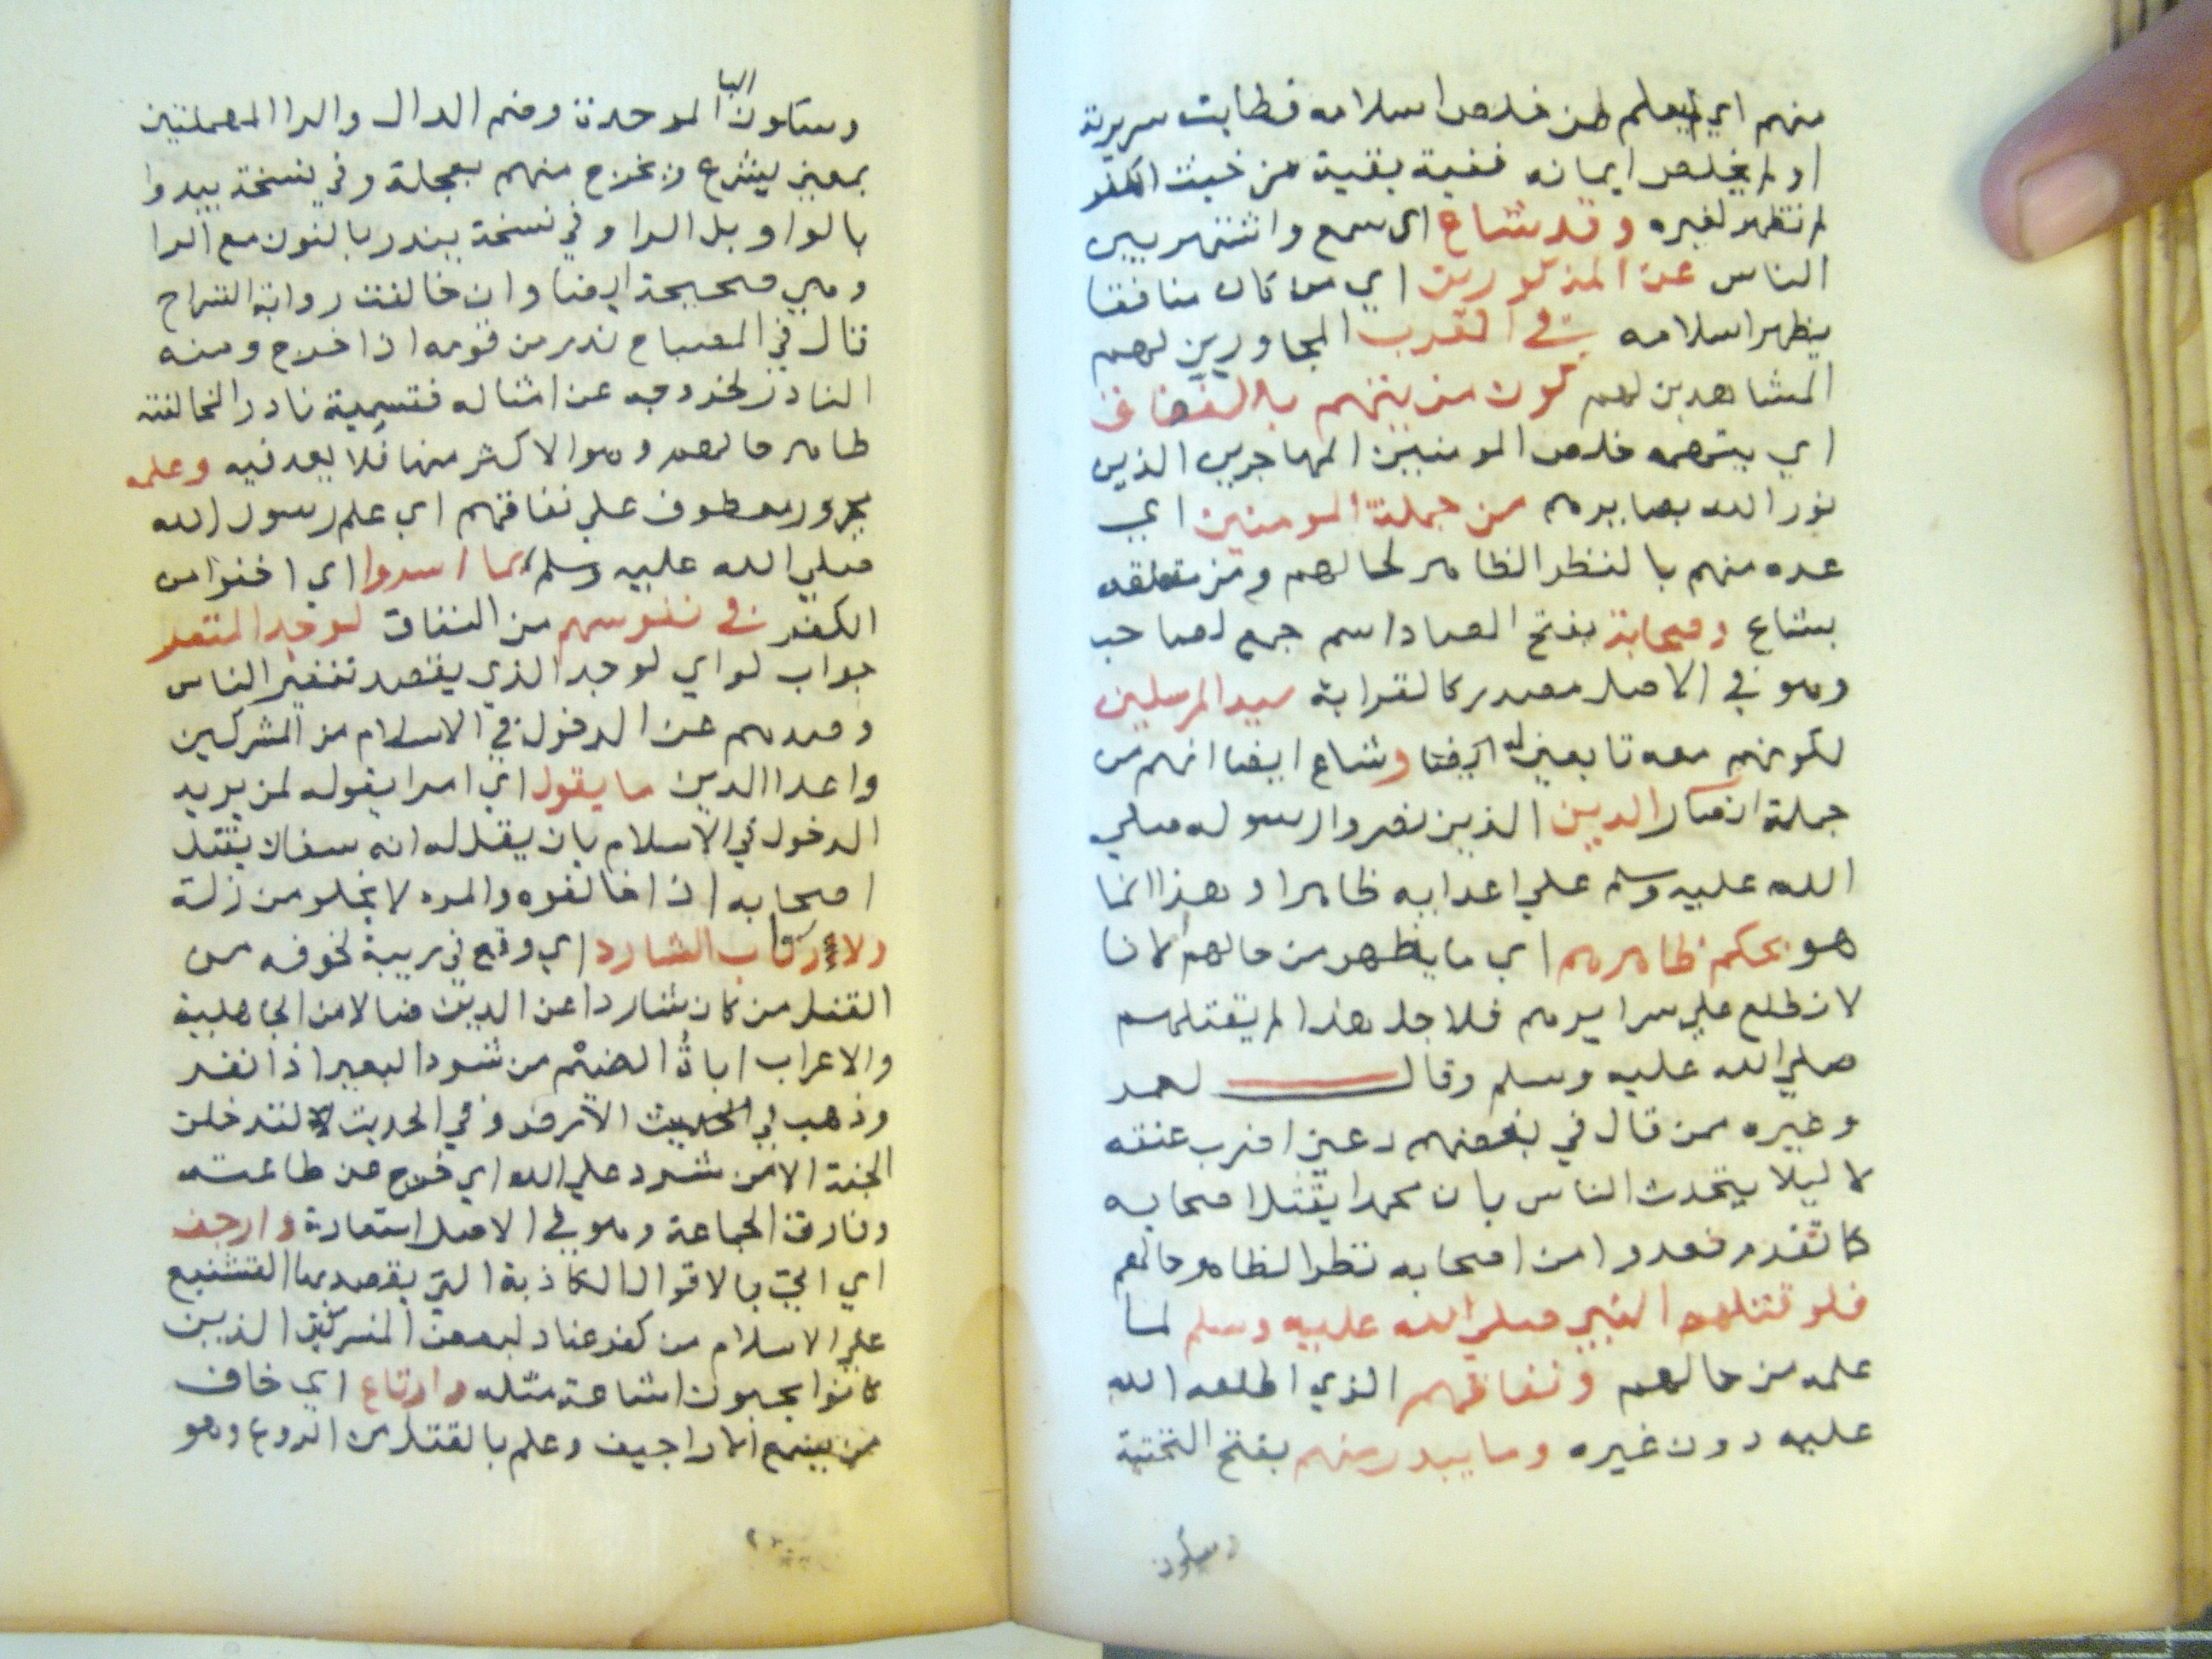 منهم اي لم يعلم من خلص اسلامه فطابت سريرته
او لم يخلص ايمانه ففيه بقية من خبث الكفر
لم تظهر لغيره وقد شاع اي سمع واشتهر بين
الناس عن المذكورين اي من كان منافقا
يظهر اسلامه في العرب المجاورين لهم
المشاهدين لهم كون من يتهم بالنفاق
اي يتهمه خلص المومنين المهاجرين الذين
نور الله بصايرهم من جملة المومنين اي
عده منهم بالنظر الظاهر لحالهم ومن متعلقه
بشاع وصحابة بفتح الصاد اسم جمع لصاحب
وهو في الاصل مصدر كالقرابة سيد المرسلين
لكونهم معه تابعين له ايضا وشاع ايضا انهم من
جملة انصار الدين الذين نصروا رسوله صلي
الله عليه وسلم علي اعدايه ظاهرا وهذا انما
هو بحكم ظاهرهم اي ما يظهر من حالهم لانا
لا نطلع علي سرايرهم فلاجل هذا لم يقتلهم
صلي الله عليه وسلم وقال لعمر
وغيره ممن قال في بعضهم دعني اضرب عنقه
لا ليلا يتحدث الناس بان محمدا يقتل اصحابه
كما تقدم فعدوا من اصحابه نظرا لظاهر حالهم
فلو قتلهم النبي صلي الله عليه وسلم لما
علمه من حالهم ونفاقهم الذي اطلعه الله
عليه دون غيره وما يبدر منهم بفتح التحتية
وسكون
وسكون البا الموحدة وضم الدال والرا المهملتين
بمعني يشرع من يخرج منهم بعجلة وفي نسخة يبدوا
بالواو بدل الرا وفي نسخة يندر بالنون مع الرا
وهي صحيحة ايضا وان خالفت رواية الشراح
قال في المصباح ندر من قومه اذا خرج ومنه
النادر لخروجه عن امثاله فتسمية نادر المخالفته
ظاهر حالهم وهو الاكثر منها فلا يعد فيه وعلمه
مجرور معطوف علي نفاقهم اي علم رسول الله
صلي الله عليه وسلم بما اسروا اي اخفوا من
الكفر في نفوسهم من النفاق لوجد المنفر
جواب لو اي لوجد الذي يقصد تنفير الناس
وصدهم عن الدخول في الاسلام من المشركين
واعدا الدين ما يقول اي امرا يقوله لمن يريد
الدخول في الاسلام بان يقل له انه سفاك يقتل
اصحابه اذا خالفوه والمره لا يخلو من زلة
ولارتاب الشارد اي وقع في ريبة لخوفه من
القتل من كان شاردا عن الدين ضالا من الجاهلية
والاعراب اباة الضيم من شرود البعير اذا نفر
وذهب في الارض وفي الحديث لتدخلن
الجنة الا من شرد علي الله اي خرج عن طاعته
وفارق الجماعة وهو في الاصل استعارة وارجف
اي اتي بالاقوال الكاذبة التي يقصد بها التشنيع
علي الاسلام من كفر عناد لبعض المشركين الذين
كانوا يحبون اشاعة مثله وارتاع اي خاف
من يسمع الاراجيف وعلم بالقتل من الروع وهو